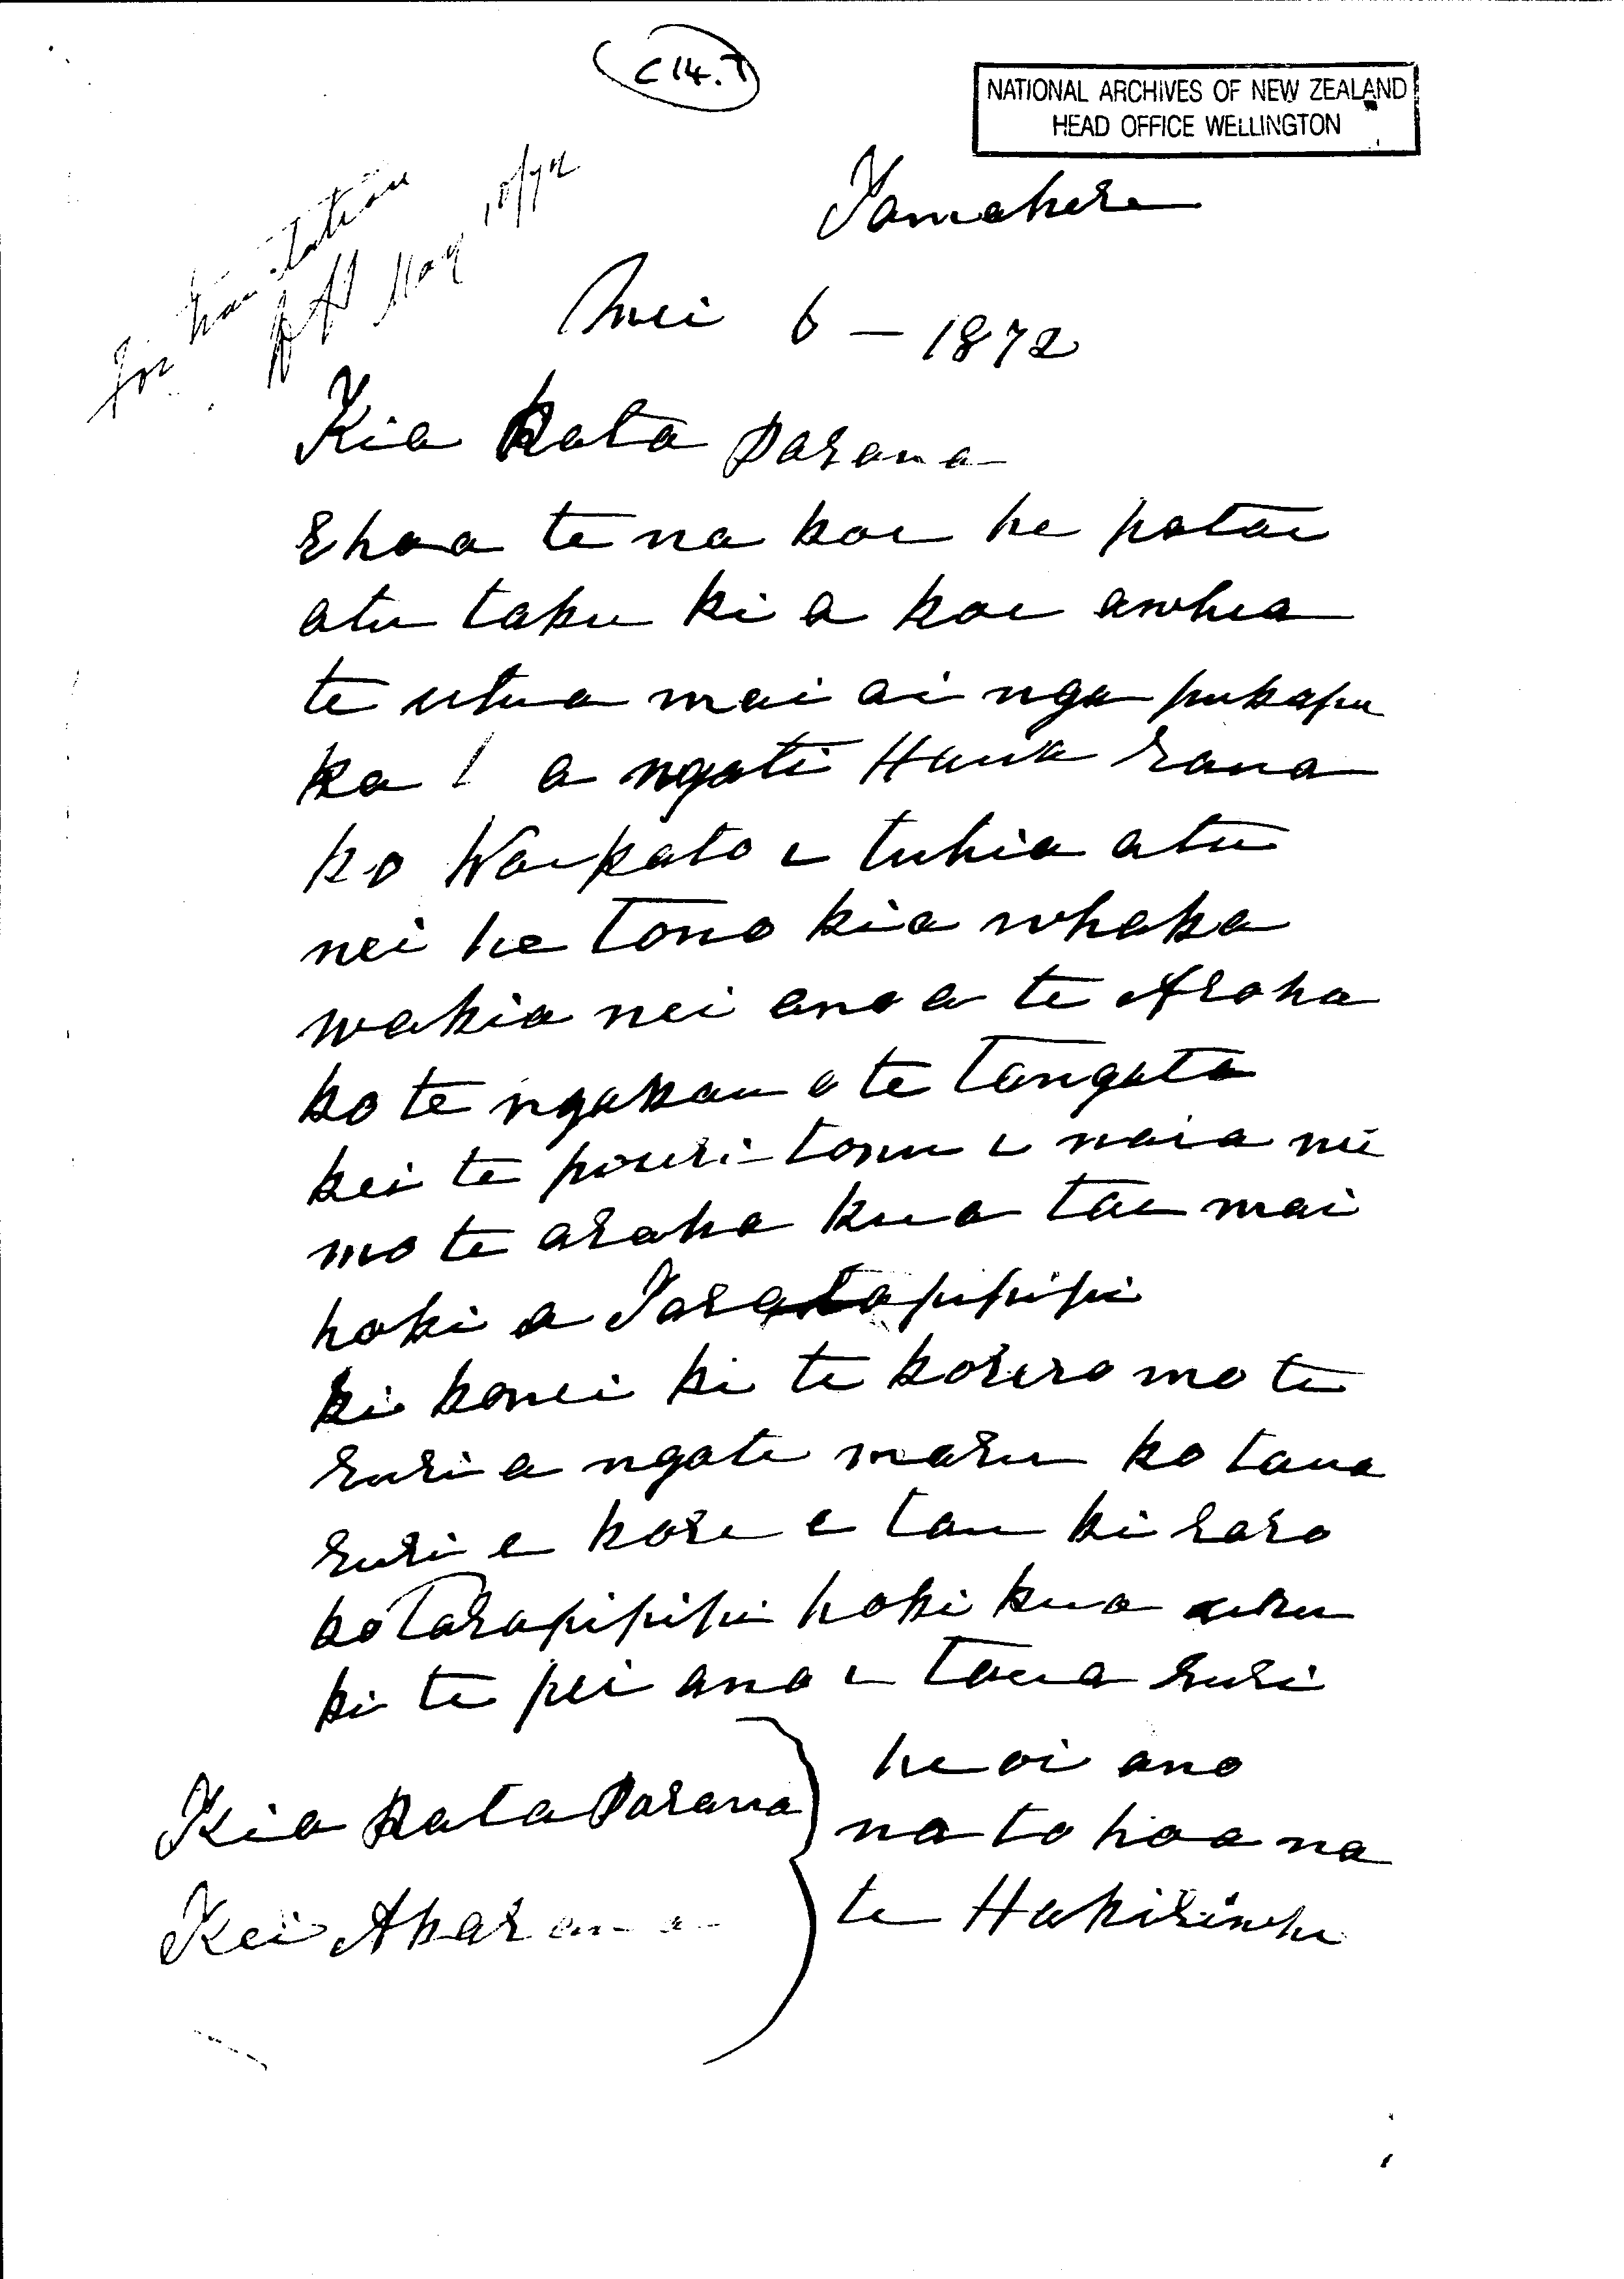 C 14. T
NATIONAL ARCHIVES OF NEW ZEALAND
HEAD OFFICE WELLINGTON
For translation
May 10/72
Tamahere
Mei 6 – 1872
Kia Rata Parana
Ehoa te na koe he patai
atu taku ki a koe awhea
te utua mai ai nga pukapu
ka / a ngati Haua raua
ko Waikato i tuhia atu
nei he tono kia whaka
wakia nei ano a te Aroha
ko te ngakau o te tangata
kei te pouri tonu i naia nei
mo te aroha kua tae mai
hoki a Tarapipipi
ki konei ki te korero mo te
ruri a ngati maru ko taua
ruri e kore e tau ki raro
ko Tarapipipi hoki kua uru
ki te pei ano i taua ruri
he oi ano
na to hoa na
te Hakiriwhi
Kia Rata Parana
Kei Akarana